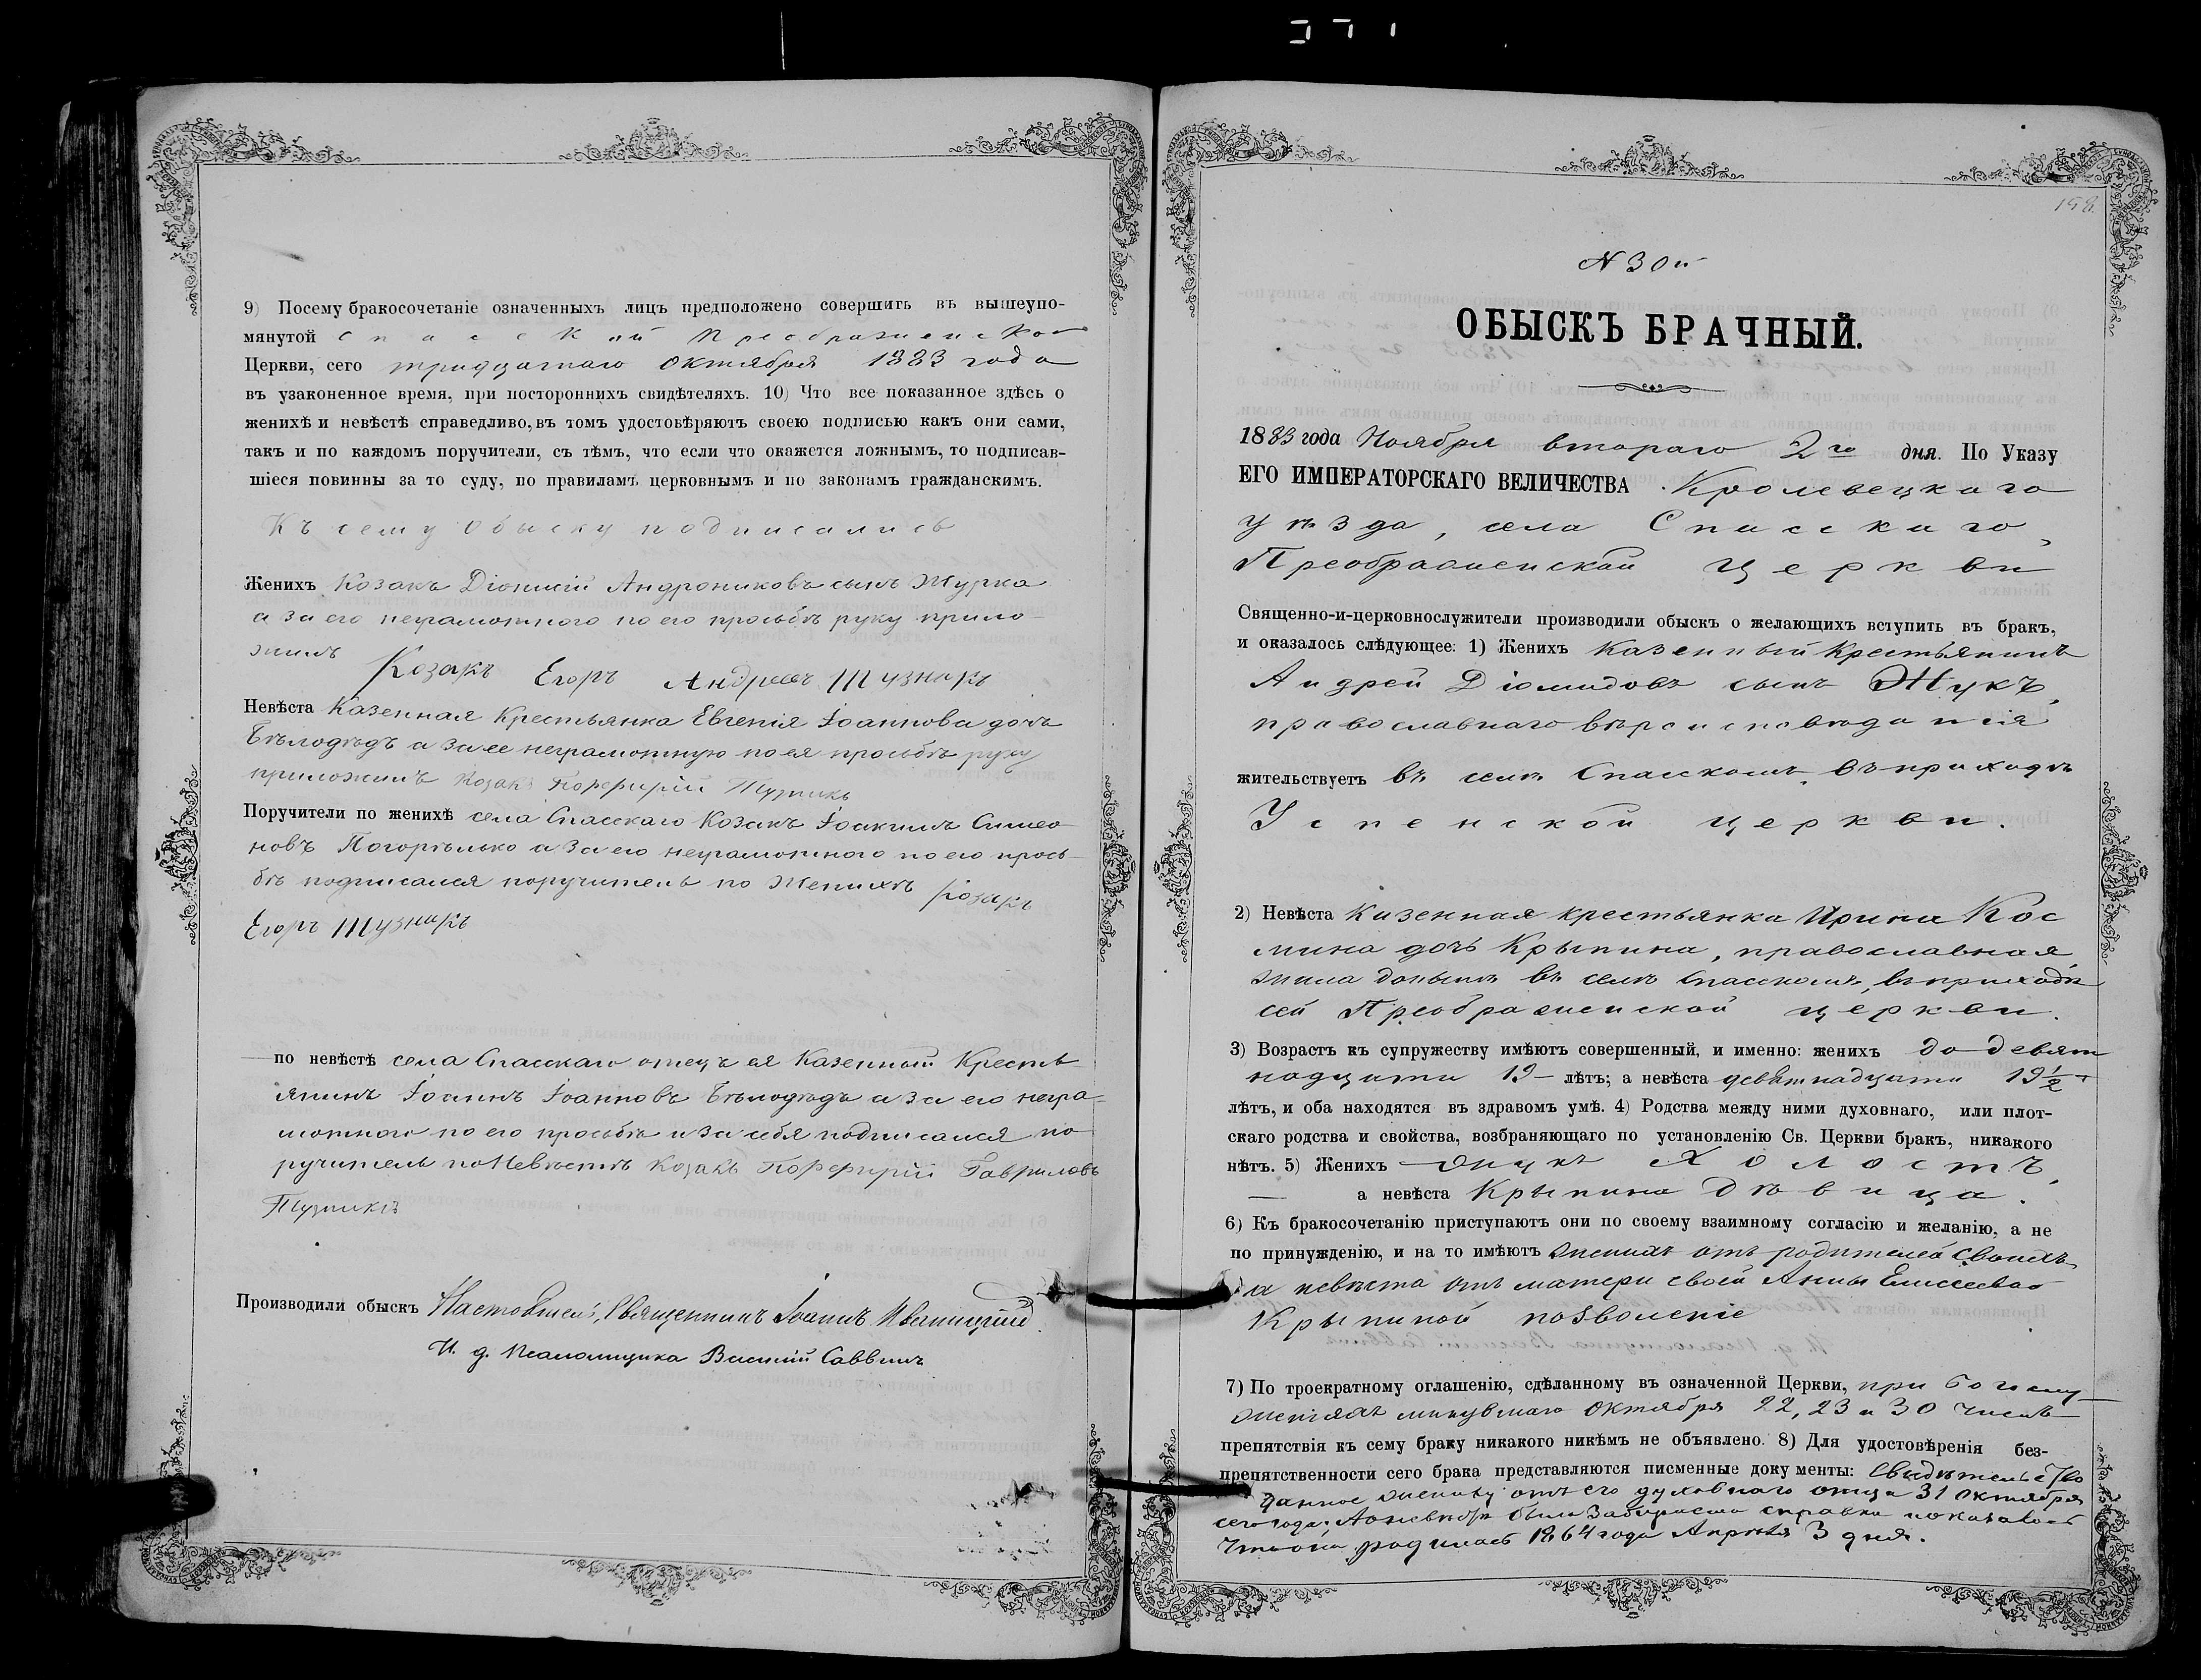 9) Посему бракосочетаніе означенныхъ лицъ предположено совершить въ вышеупо-
мянутой Спасской Преображенской
Церкви, сего тридцатаго Октября 1883 года
въ узаконенное время, при постороннихъ свидѣтеляхъ. 10) Что все показанное здѣсь о
женихѣ и невѣстѣ справедливо, въ томъ удостовѣряютъ своею подписью какъ они сами,
такъ и по каждомъ поручители, съ тѣмъ, что если что окажется ложнымъ, то подписав-
шіеся повинны за то суду, по правиламъ церковнымъ и по законамъ гражданскимъ.
Къ сему обыску подписались
Женихъ Козакъ Діонисій Андрониковъ сынъ Журка
а за его неграмотного по его прозьбѣ руку прило-
жилъ Козакъ Егоръ Андреевъ
Невѣста Казенная Крестьянка Евгенія Іоаннова дочь
Бѣлодѣдъ а за ее неграмотную по ея прозьбѣ руку
приложилъ Козакъ Порфирій
Поручители по женихѣ села Спасскаго Козакъ Іоакимъ Симео-
новъ Погорѣлько а за его неграмотного по его прозь-
бѣ подписался поручитель по Женихѣ Козакъ
Егоръ
по невѣстѣ села Спасскаго отецъ ея Казенный Кресть-
янинъ Іоаннъ Іоанновъ Бѣлодѣдъ а за его негра-
мотного по его прозьбѣ и за себя подписался по-
ручитель по Невѣстѣ Козакъ Порфирій Гавриловъ
Производили обыскъ Настоятель, Священникъ Іоаннъ
И. д. Псаломщика Василій Саввичъ
158
N 30й
ОБЫСКЪ БРАЧНЫЙ.
1883 года Ноября втораго 2го дня. По Указу
ЕГО ИМПЕРАТОРСКАГО ВЕЛИЧЕСТВА Кролевецкаго
уѣзда, села Спасскаго,
Преображенской церкви
Священно-и-церковнослужители производили обыскъ о желающихъ вступить въ бракъ,
и оказалось слѣдующее: 1) Женихъ Казенный Крестьянинъ
Андрей Діомидовъ сынъ Жукъ,
православнаго вѣроисповѣданія
жительствуетъ въ селѣ Спасскомъ въ приходѣ
Успенской церкви.
2) Невѣста Казенная крестьянка Ирина Кос
мина дочь Крыпина, православная,
жила донынѣ въ селѣ Спасскомъ, въ приходѣ
сей Преображенской церкви.
3) Возрастъ къ супружеству имѣютъ совершенный, и именно: женихъ до девят
надцати 19 лѣтъ; а невѣста девятнадцати 19½
лѣтъ, и оба находятся въ здравомъ умѣ. 4) Родства между ними духовнаго, или плот-
скаго родства и свойства, возбраняющаго по установленію Св. Церкви бракъ, никакого
нѣтъ. 5) Женихъ Жукъ Холостъ,
а невѣста Крыпина дѣвица.
6) Къ бракосочетанію приступаютъ они по своему взаимному согласію и желанію, а не
по принужденію, и на то имѣютъ женихъ отъ родителей своихъ
а невѣста отъ матери своей Анны Елисеевой
Крыпиной позволеніе
7) По троекратному оглашенію, сдѣланному въ означенной Церкви, при Богослу-
женіяхъ минувшаго Октября 22, 23 и 30 чиселъ
препятствія къ сему браку никакого никѣмъ не объявлено. 8) Для удостовѣренія без-
препятственности сего брака представляются писменные документы: Свидѣтельство
данное жениху отъ его духовнаго отца 31 Октября
сего года. справка показалось
что она родилась 1864 года Апрѣля 3 дня.